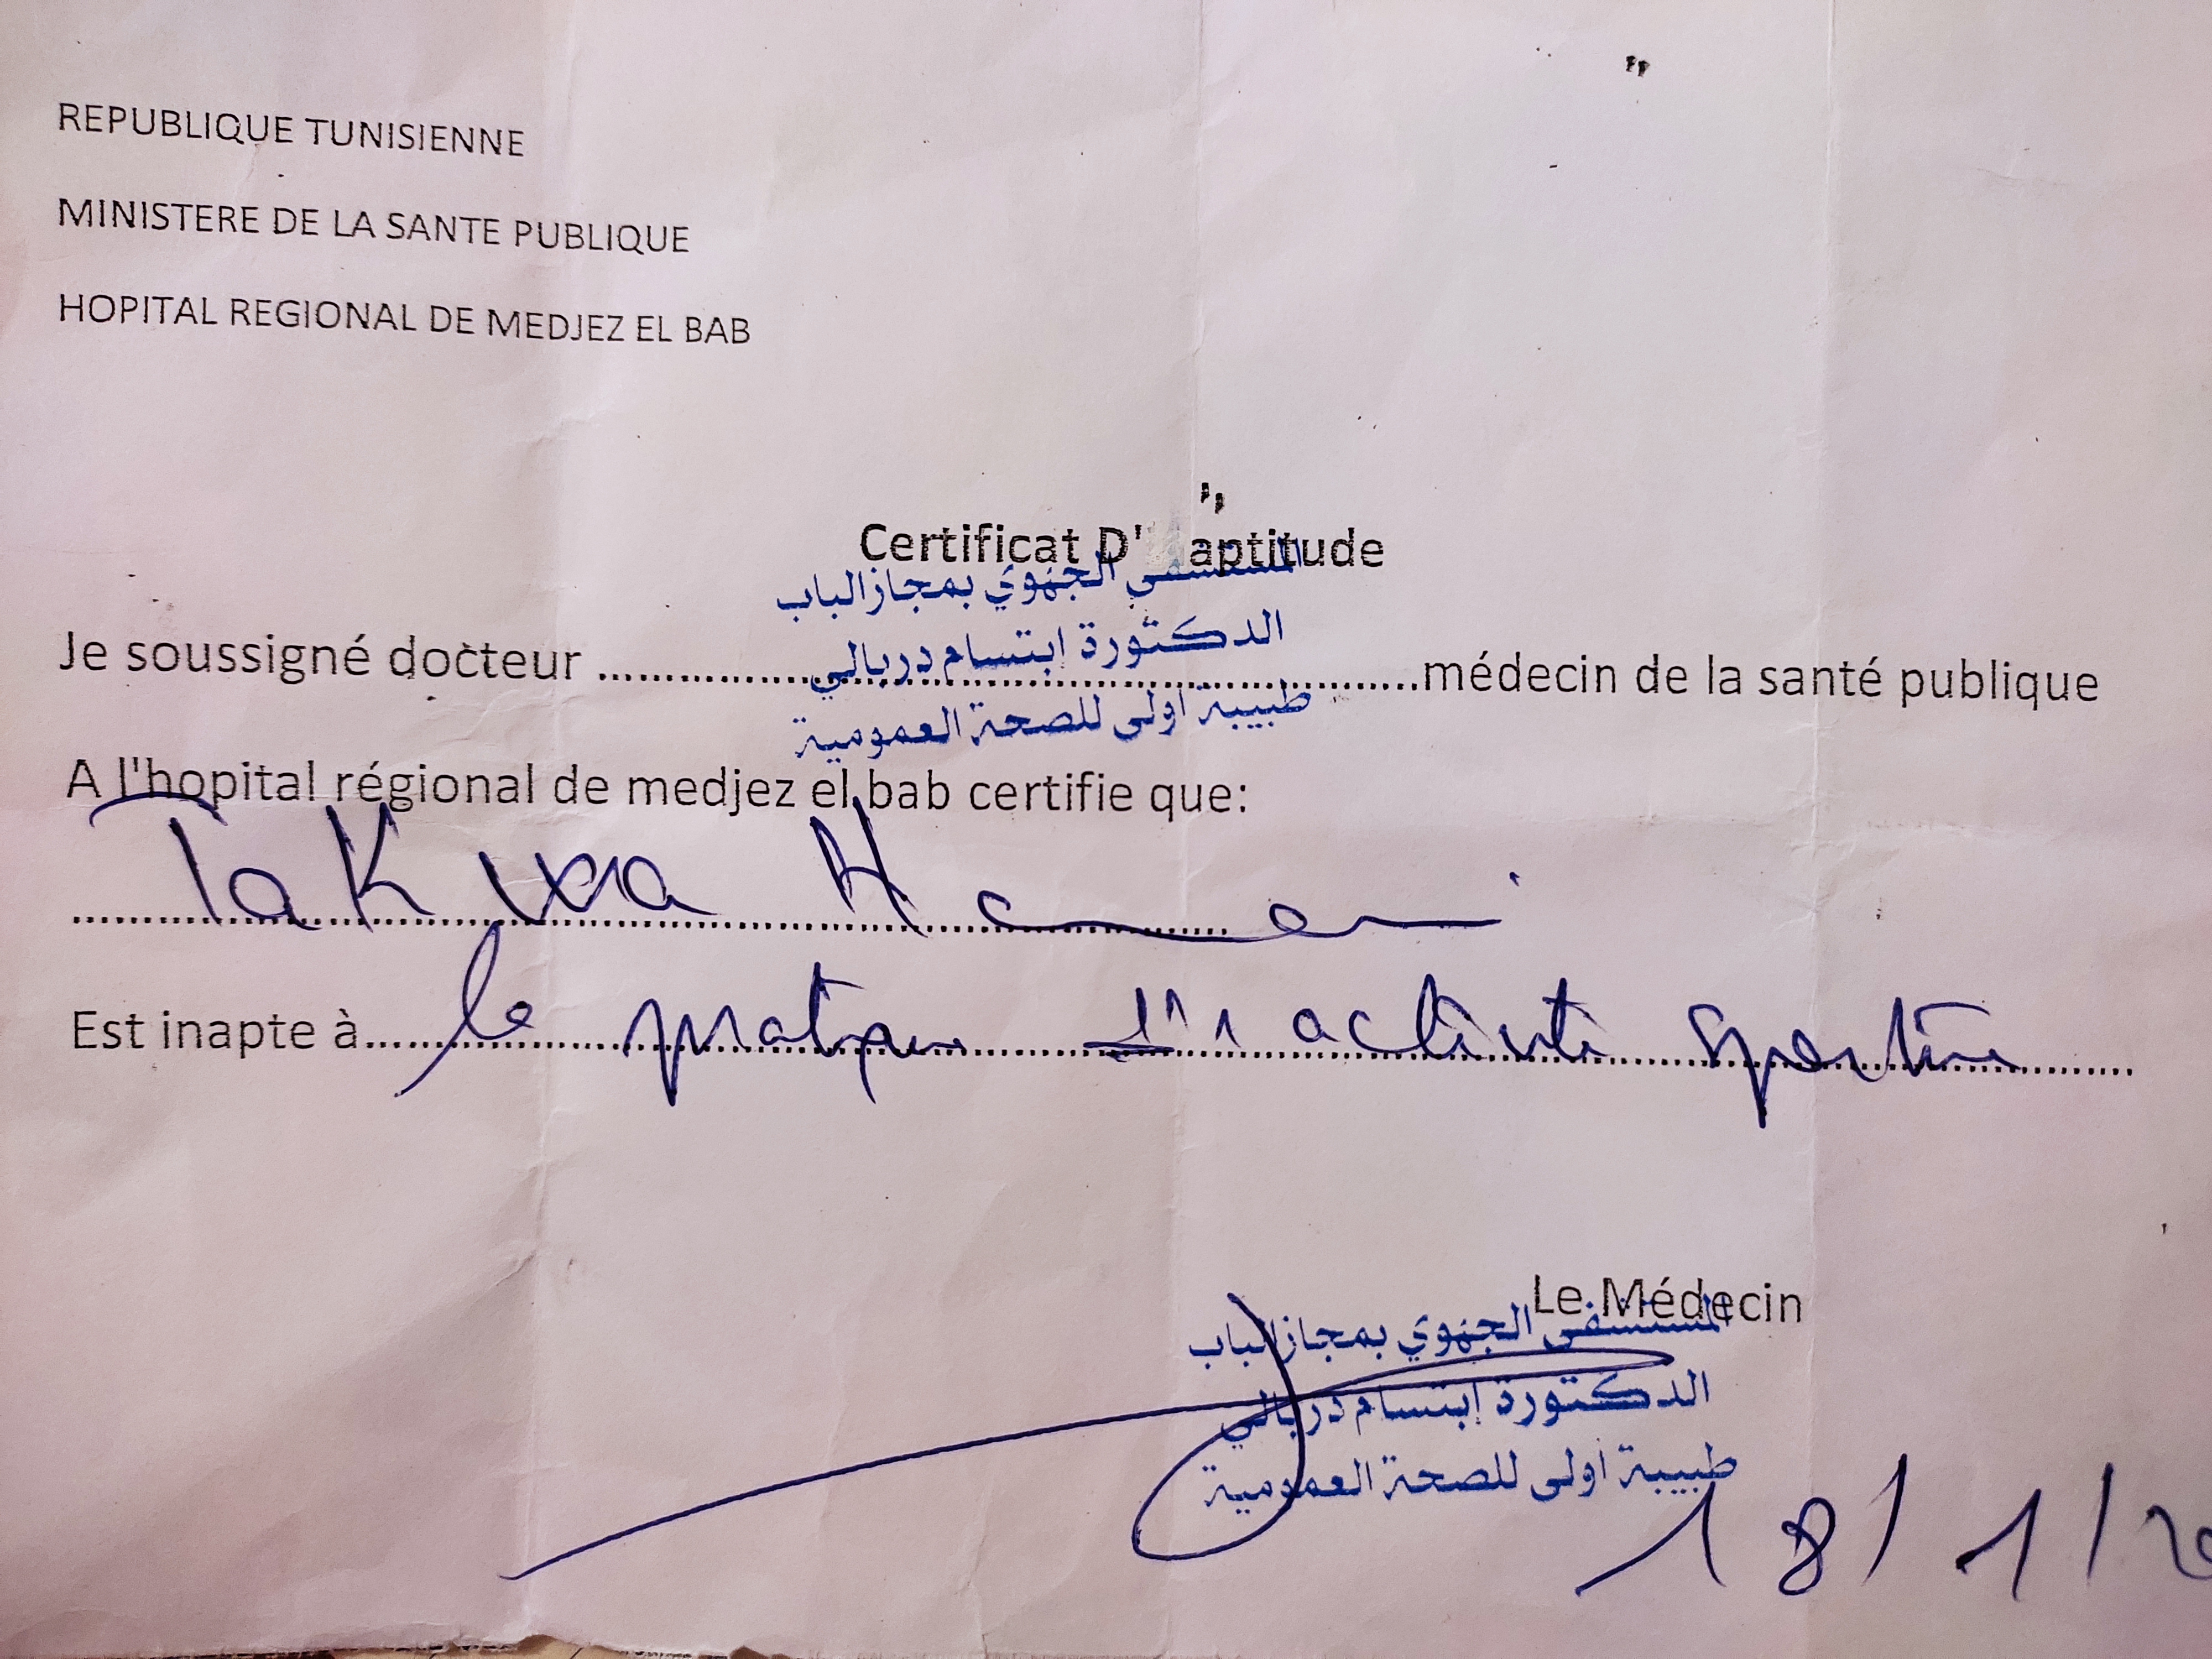 REPUBLIQUE TUNISIENNE
MINISTERE DE LA SANTE PUBLIQUE
HOPITAL REGIONAL DE MEDJEZ EL BAB
Certificat D' aptitude
المستشفى الجهوي بمجاز الباب
الدكتورة إبتسام دربالي
طبيبة اولى للصحة العمومية
Je soussigné docteur ........................................médecin de la santé publique
A l'hopital régional de medjez el bab certifie que:
Takwa
Est inapte à la pratique d'1 activité sportive
Le Médecin
المستشفى الجهوي بمجاز الباب
الدكتورة إبتسام دربالي
طبيبة اولى للصحة العمومية
18/1/20